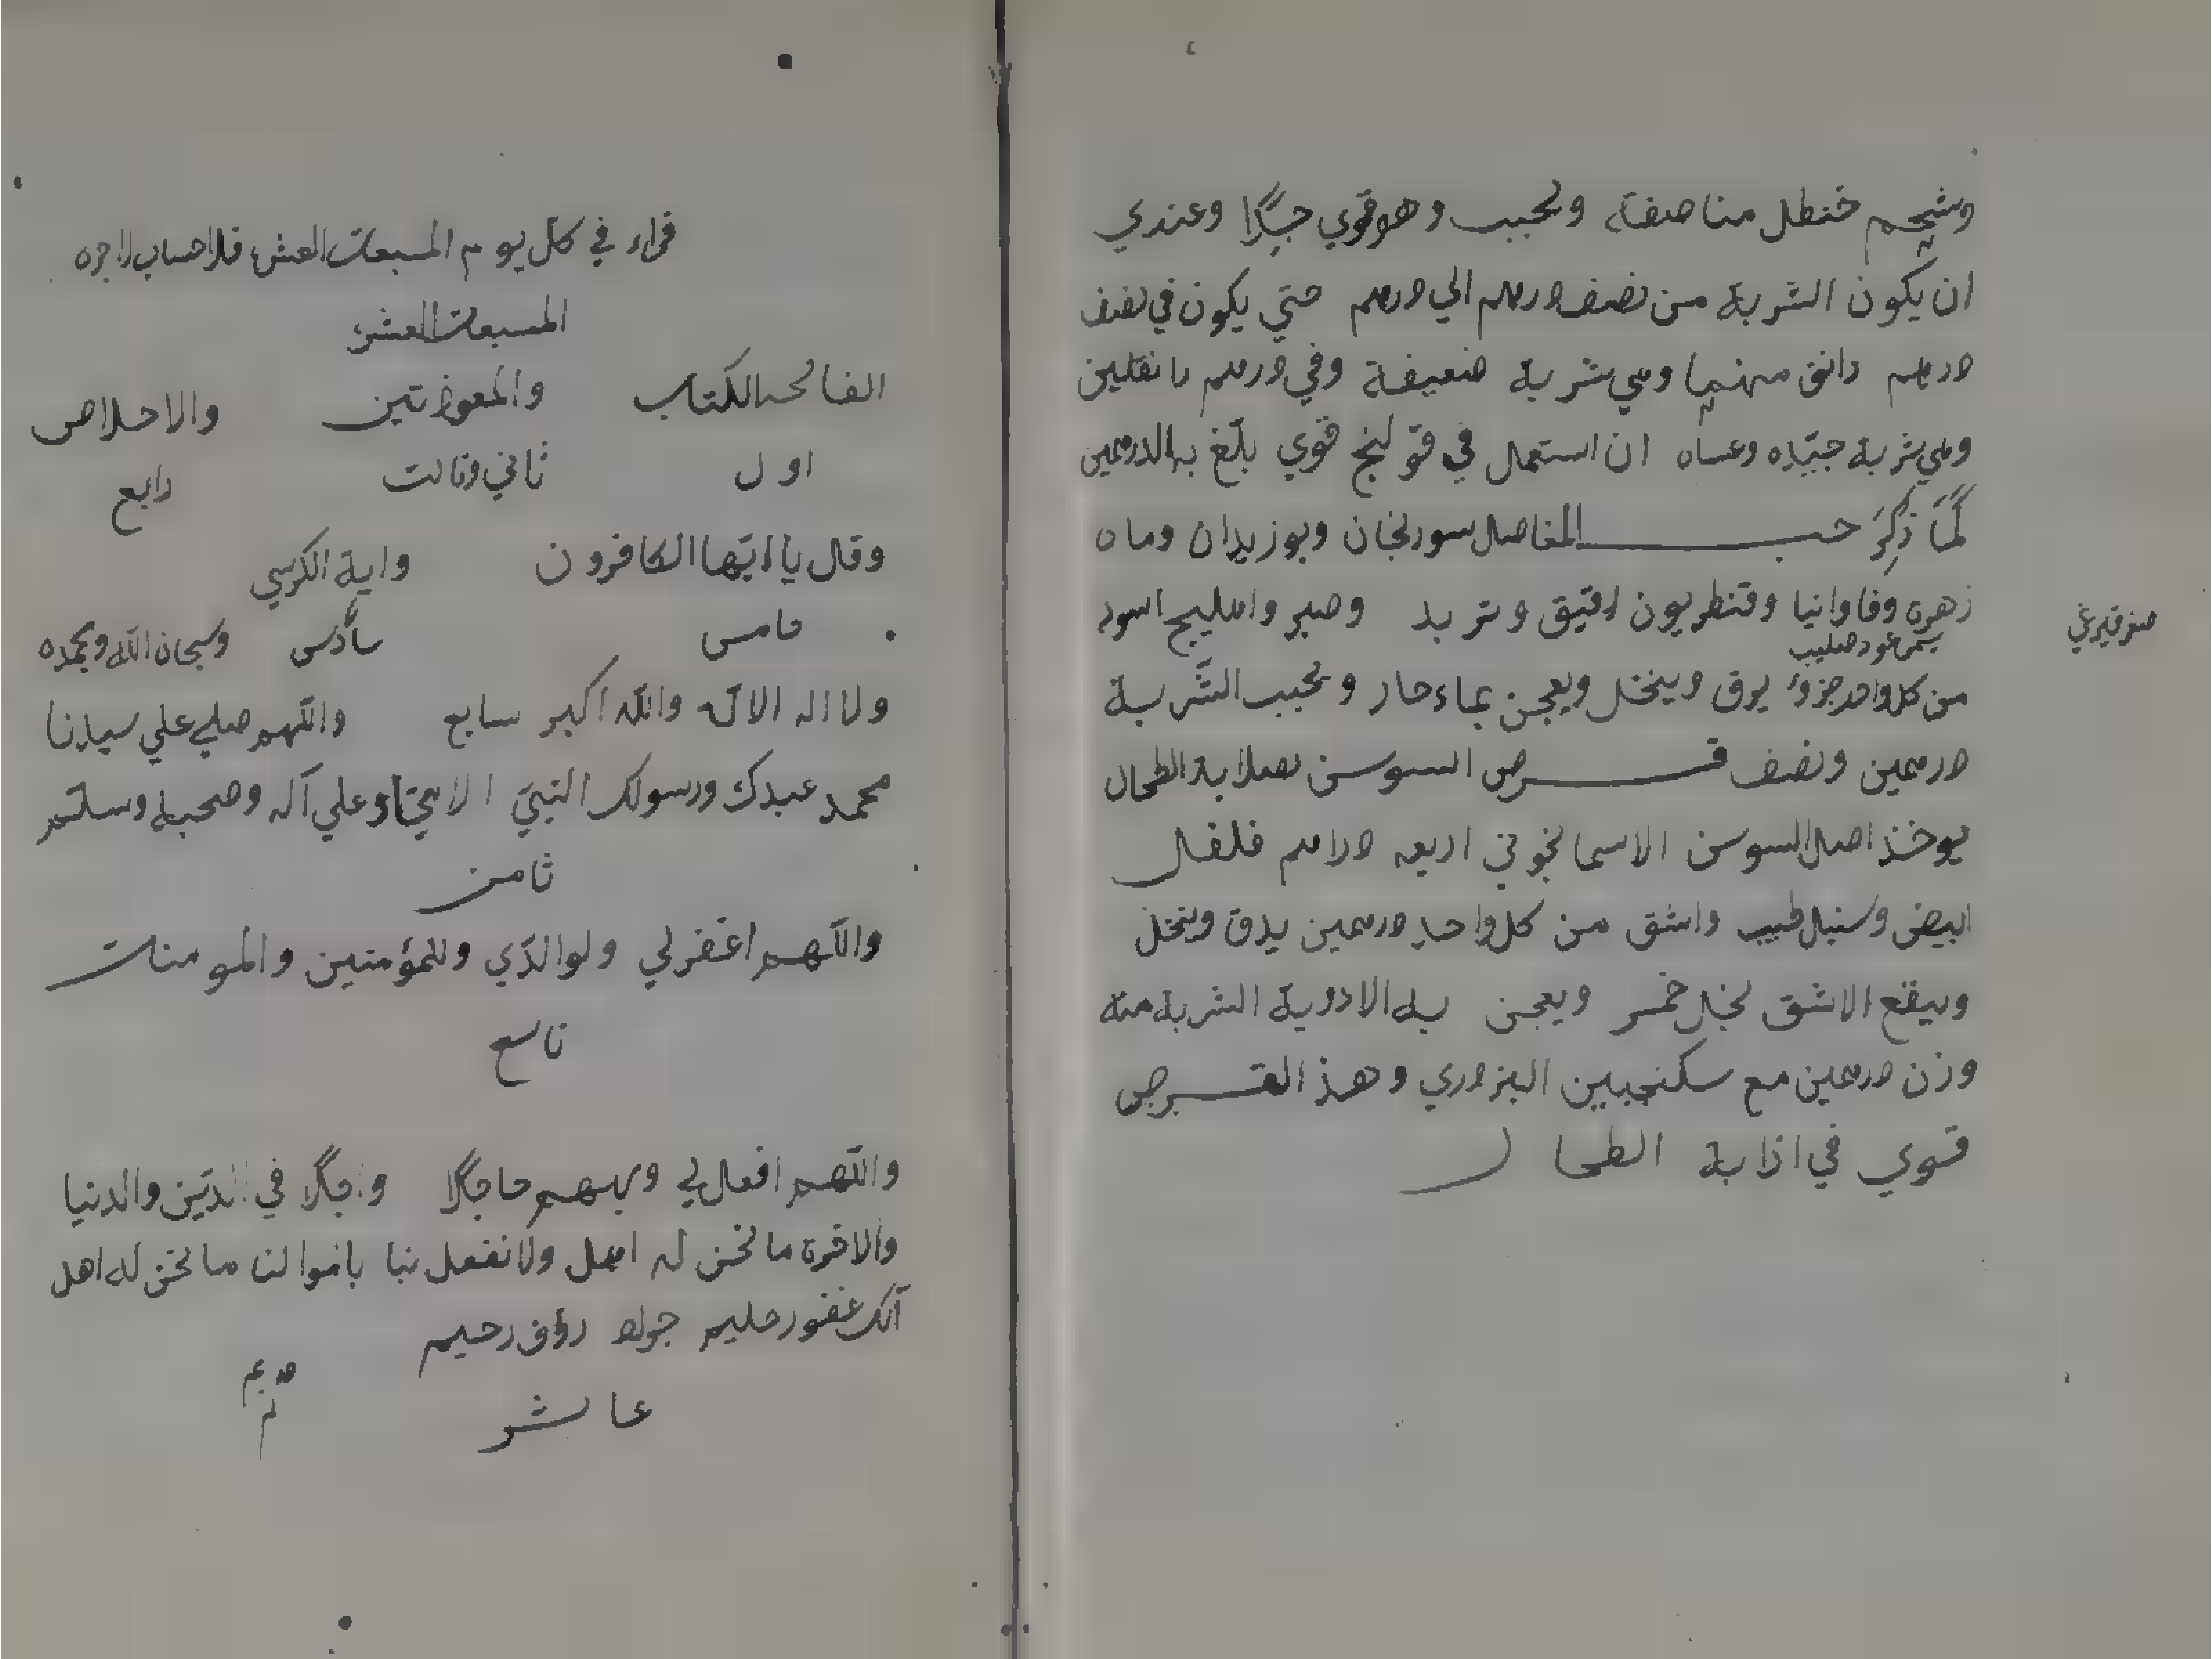 وشحم حنطل مناصفة ويحبب وهو قوي جدًا وعندي
ان يكون الشربة من نصف درهم الي درهم حتي يكون في نصف
درهم دانق منهما وهي شربة ضعيفة وفي درهم دانقين
وهي شربة جيّده وعساه ان استعمل في قولنج قوي بلّغ به الدرهمين
لمَا ذُكِرَ حب المفاصل سورنجان وبوزيدان وماه
زهرة وفاوانيا وقنطريون دقيق وتربد وصبر واهليج اسود
يسمى عود صليب
من كل واحد جزؤ يدق وينخل ويعجن بماء حار ويحبب الشّربة
درهمين ونصف قرص السوسن لصلابة الطحال
يوخذ اصل السوسن الاسمانجوني اربعه دراهم فلفل
ابيض وسنبل طيب واشق من كل واحد درهمين يدق وينخل
وينقع الاشق بخل خمر ويعجن به الادوية الشربة منه
وزن درهمين مع سكنجبين البزوري وهذا القرص
قوي في اذابة الطحال
قراء في كل يوم المسبعات العشر فلا حساب لاجره
المسبعات العشر
الفاتحه الكتاب والمعوذتين والاخلاص
اول ثاني وثالث رابع
وقال يا ايّها الكافرون واية الكرسي
خامس سادس وسبحان الله وبحمده
ولا اله الا الله والله اكبر سابع واللّهم صلي علي سيدنا
محمد عبدك ورسولك النبيّ الامي وعلي آله وصحبه وسلّم
ثامن
واللّهم اغفر لي ولوالدّي وللمؤمنين والمومنات
تاسع
واللّهم افعل لي وبهم عاجلًا واجلًا في الدّين والدنيا
والاخرة ما نحن له اهل ولا تفعل بنا يا مولنا ما نحن له اهل
انّك غفور حليم جواد رؤف رحيم
عاشر